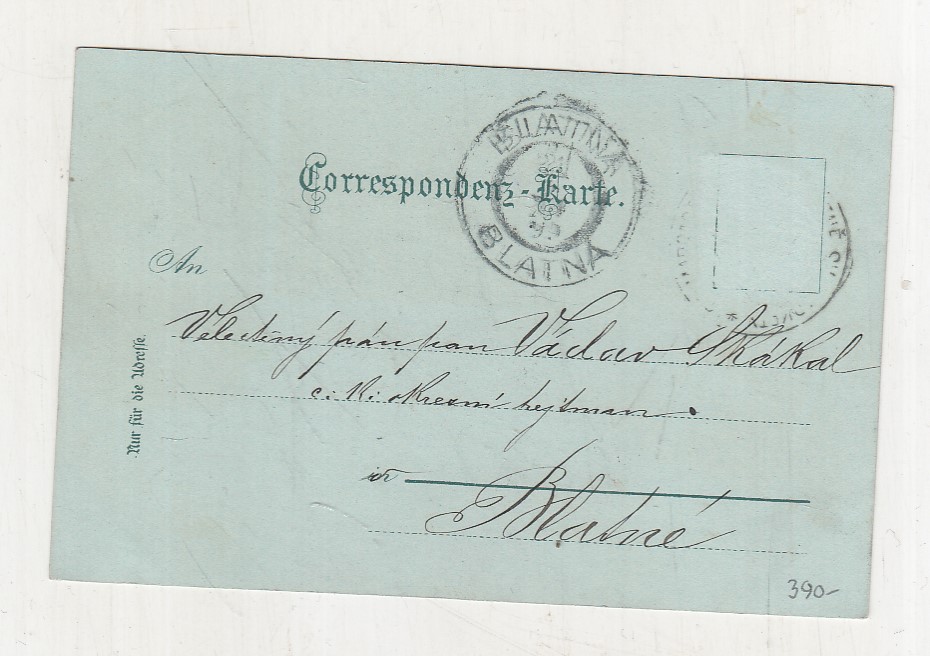 BLATNA
Correspondenz-Karte.
BLATNÁ
An
Nur für die Adresse.
Velectěný pán pan Václav Škákal
c. k. okresní hejtman.
in
Blatné
390-